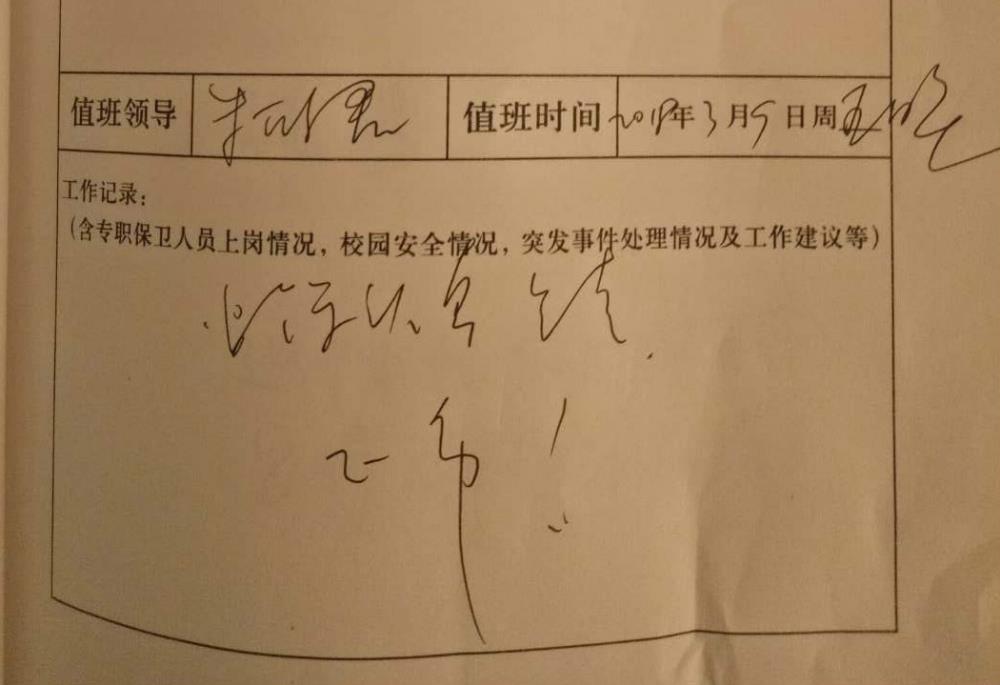 值班领导 值班时间 2018年3月9日周五晚
工作记录：
（含专职保卫人员上岗情况，校园安全情况，突发事件处理情况及工作建议等）
正常！